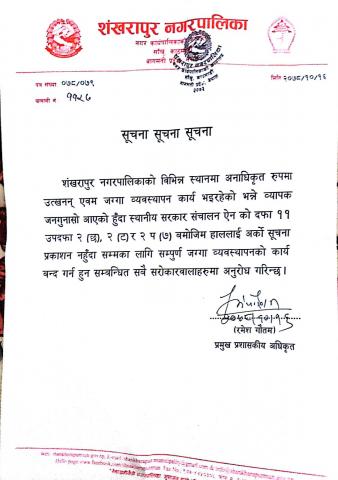 शंखरापुर नगरपालिका
नगर कार्यपालिकाको
बागमती
पत्र संख्या ०७८/०७९
चलानी नं ११२७
मिति २०७८/१०/१६
सूचना सूचना सूचना
शंखरापुर नगरपालिकाको विभिन्न स्थानमा अनाधिकृत रुपमा
उत्खनन् एवम जग्गा व्यवस्थापन कार्य भइरहेको भन्ने व्यापक
जनगुनासो आएको हुँदा स्थानीय सरकार संचालन ऐन को दफा ११
उपदफा २ (छ), २ (ट) र २ प (७) बमोजिम हाललाई अर्को सूचना
प्रकाशन नहुँदा सम्मका लागि सम्पुर्ण जग्गा व्यवस्थापनको कार्य
बन्द गर्न हुन सम्बन्धित सवै सरोकारवालाहरुमा अनुरोध गरिन्छ।
२०७८-१०-१६
(रमेश गौतम)
प्रमुख प्रशासकीय अधिकृत